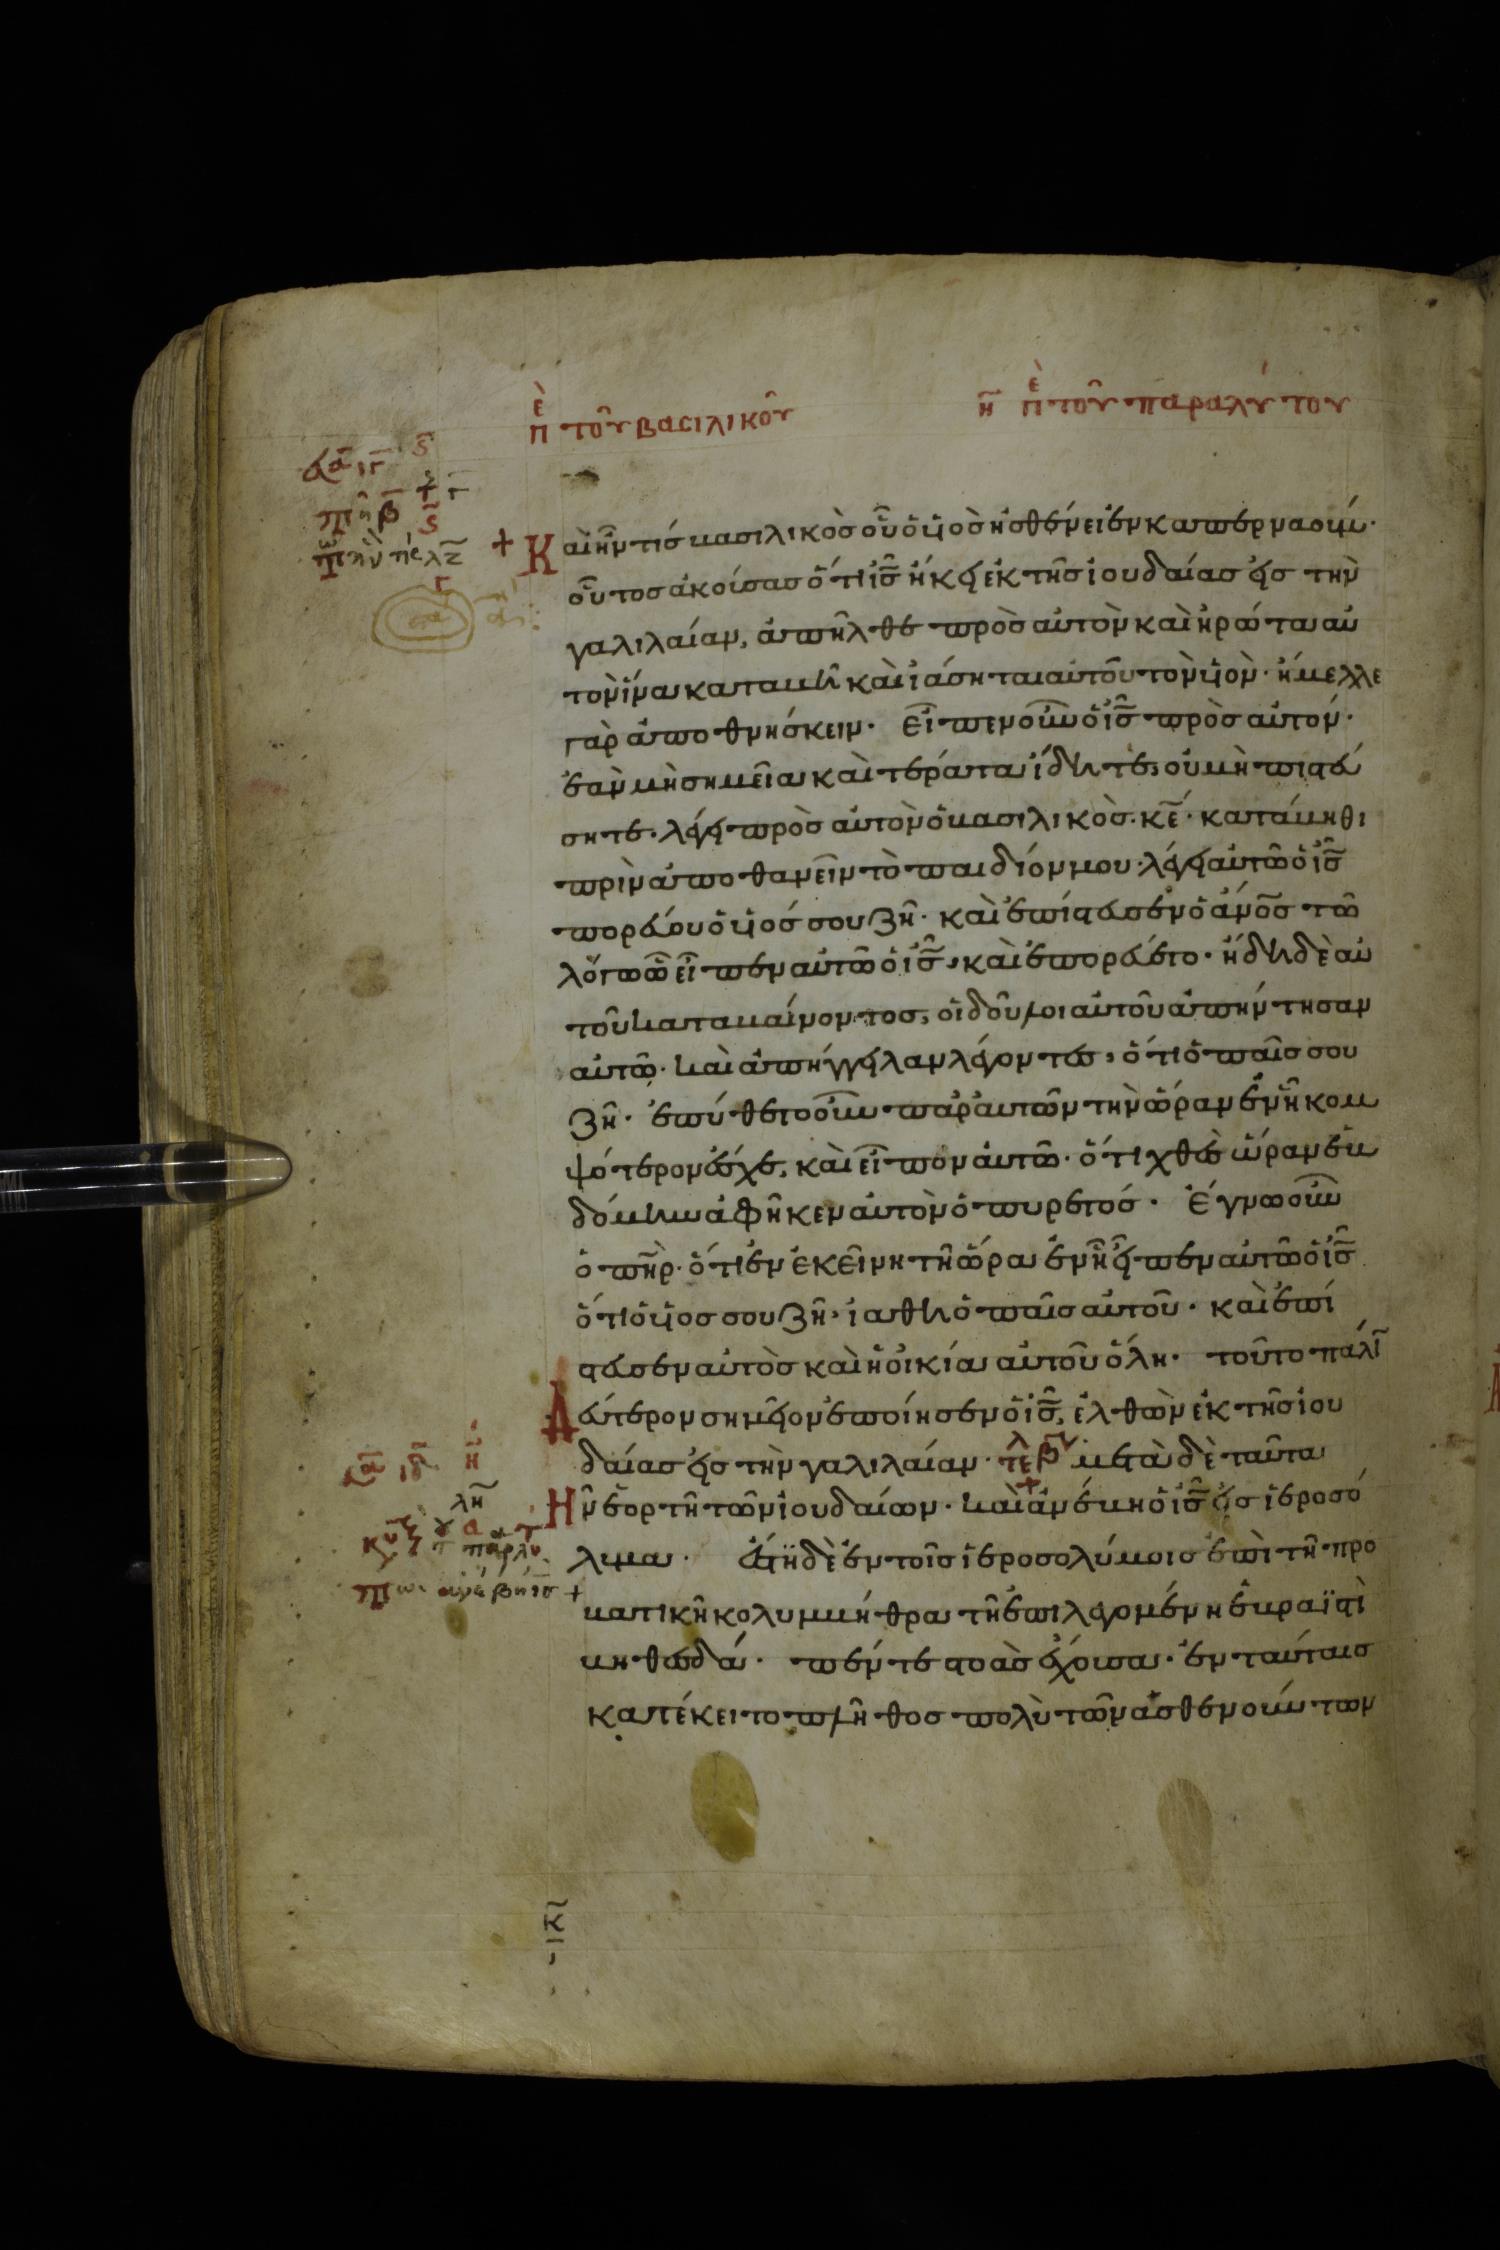 ὲπ τοῦ βασιλικοῦ
η̄ ὲπ τοῦ παραλύτου
Καὶ ἦν τίς βασιλικὸς οὗ ὁ υἱὸς ἠσθένει ἐν καπερναούμ·
οὗτος ἀκούσας ὅτι ις̄ ἥκει ἐκ τῆς ἰουδαίας εἰς τὴν
γαλιλαίαν, ἀπῆλθε πρὸς αὐτὸν καὶ ἠρώτα αὐ
τὸν ἵνα καταβῆ καὶ ἰάσηται αὐτοῦ τὸν υἱὸν· ἤμελλε
γὰρ ἀποθνήσκειν· εἶπεν οὖν ὁ ις̄ πρὸς αὐτόν·
ἐὰν μὴ σημεῖα καὶ τέρατα ἴδητε, οὐ μὴ πιστεύ
σητε· λέγει πρὸς αὐτὸν ὁ βασιλικὸς· κε̄· κατάβηθι
πρὶν ἀποθανεῖν τὸ παιδίον μου· λέγει αὐτῶ ὁ ις̄
πορεύου ὁ υἱός σου ζῆ· καὶ ἐπίστευσεν ὁ ἄνο̄ς τῶ
λόγω ὧ εἶπεν αὐτῶ ὁ ις̄, καὶ ἐπορεύετο· ἤδη δὲ αὐ
τοῦ καταβαίνοντος, οἱ δοῦλοι αὐτοῦ ἀπήντησαν
αὐτῶ· καὶ ἀπήγγειλαν λέγοντες, ὅτι ὁ παῖς σου
ζῆ· ἐπύθετο οὖν παρ' αὐτῶν τὴν ὥραν ἐν ἧ κομ
ψότερον ἔσχε, καὶ εἶπον αὐτῶ· ὅτι χθὲς ὥραν ἑβ
δόμην ἀφῆκεν αὐτὸν ὁ πυρετός· Ἔγνω οὖν
ὁ πη̄ρ· ὅτι ἐν ἐκείνη τῆ ὥρα ἐν ἧ εἶπεν αὐτῶ ὁ ις̄
ὅτι ὁ υἱος σου ζῆ· ἰάθη ὁ παῖς αὐτοῦ· καὶ ἐπί
στευσεν αὐτὸς καὶ ἡ οἰκία αὐτοῦ ὅλη· τοῦτο πάλῑ
Δεύτερον σημεῖον ἐποίησεν ὁ ις̄, ἐλθὼν ἐκ τῆς ἰου
δαίας εἰς τὴν γαλιλαίαν· τε̄λ μετὰ δὲ ταῦτα
Ἦν ἑορτὴ τῶν ἰουδαίων· καὶ ἀνέβη ὁ ις̄ εἰς ἱεροσό
λυμα· Ἔστι δὲ ἐν τοῖς ἱεροσολύμοις ἐπὶ τῆ προ
βατικῆ κολυμβήθρα τῆ ἐπιλεγομένη ἑβραϊστὶ
βηθεσδά· πέντε στοὰς ἔχουσα· ἐν ταύταις
κατέκειτο πλῆθος πολὺ τῶν ἀσθενούντων